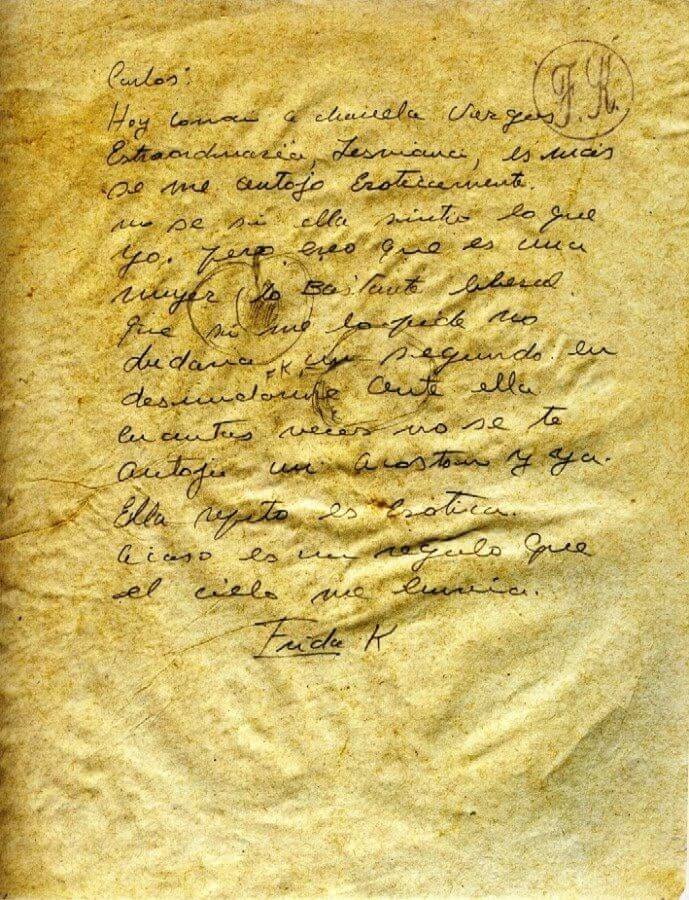 Carlos:
F. K.
Hoy conocí a chavela Vargas
Extraordinaria, Lesviana, es más
se me antojo Eroticamente.
no se si ella sintio lo que
yo. pero creo que es una
mujer lo Bastante liberal
que si me lo pide no
dudaria un segundo en
F K
desnudarme ante ella
cuantas veces no se te
antoja un acoston y ya.
Ella repito es Erótica.
acaso es un regalo que
el cielo me envia.
Frida K